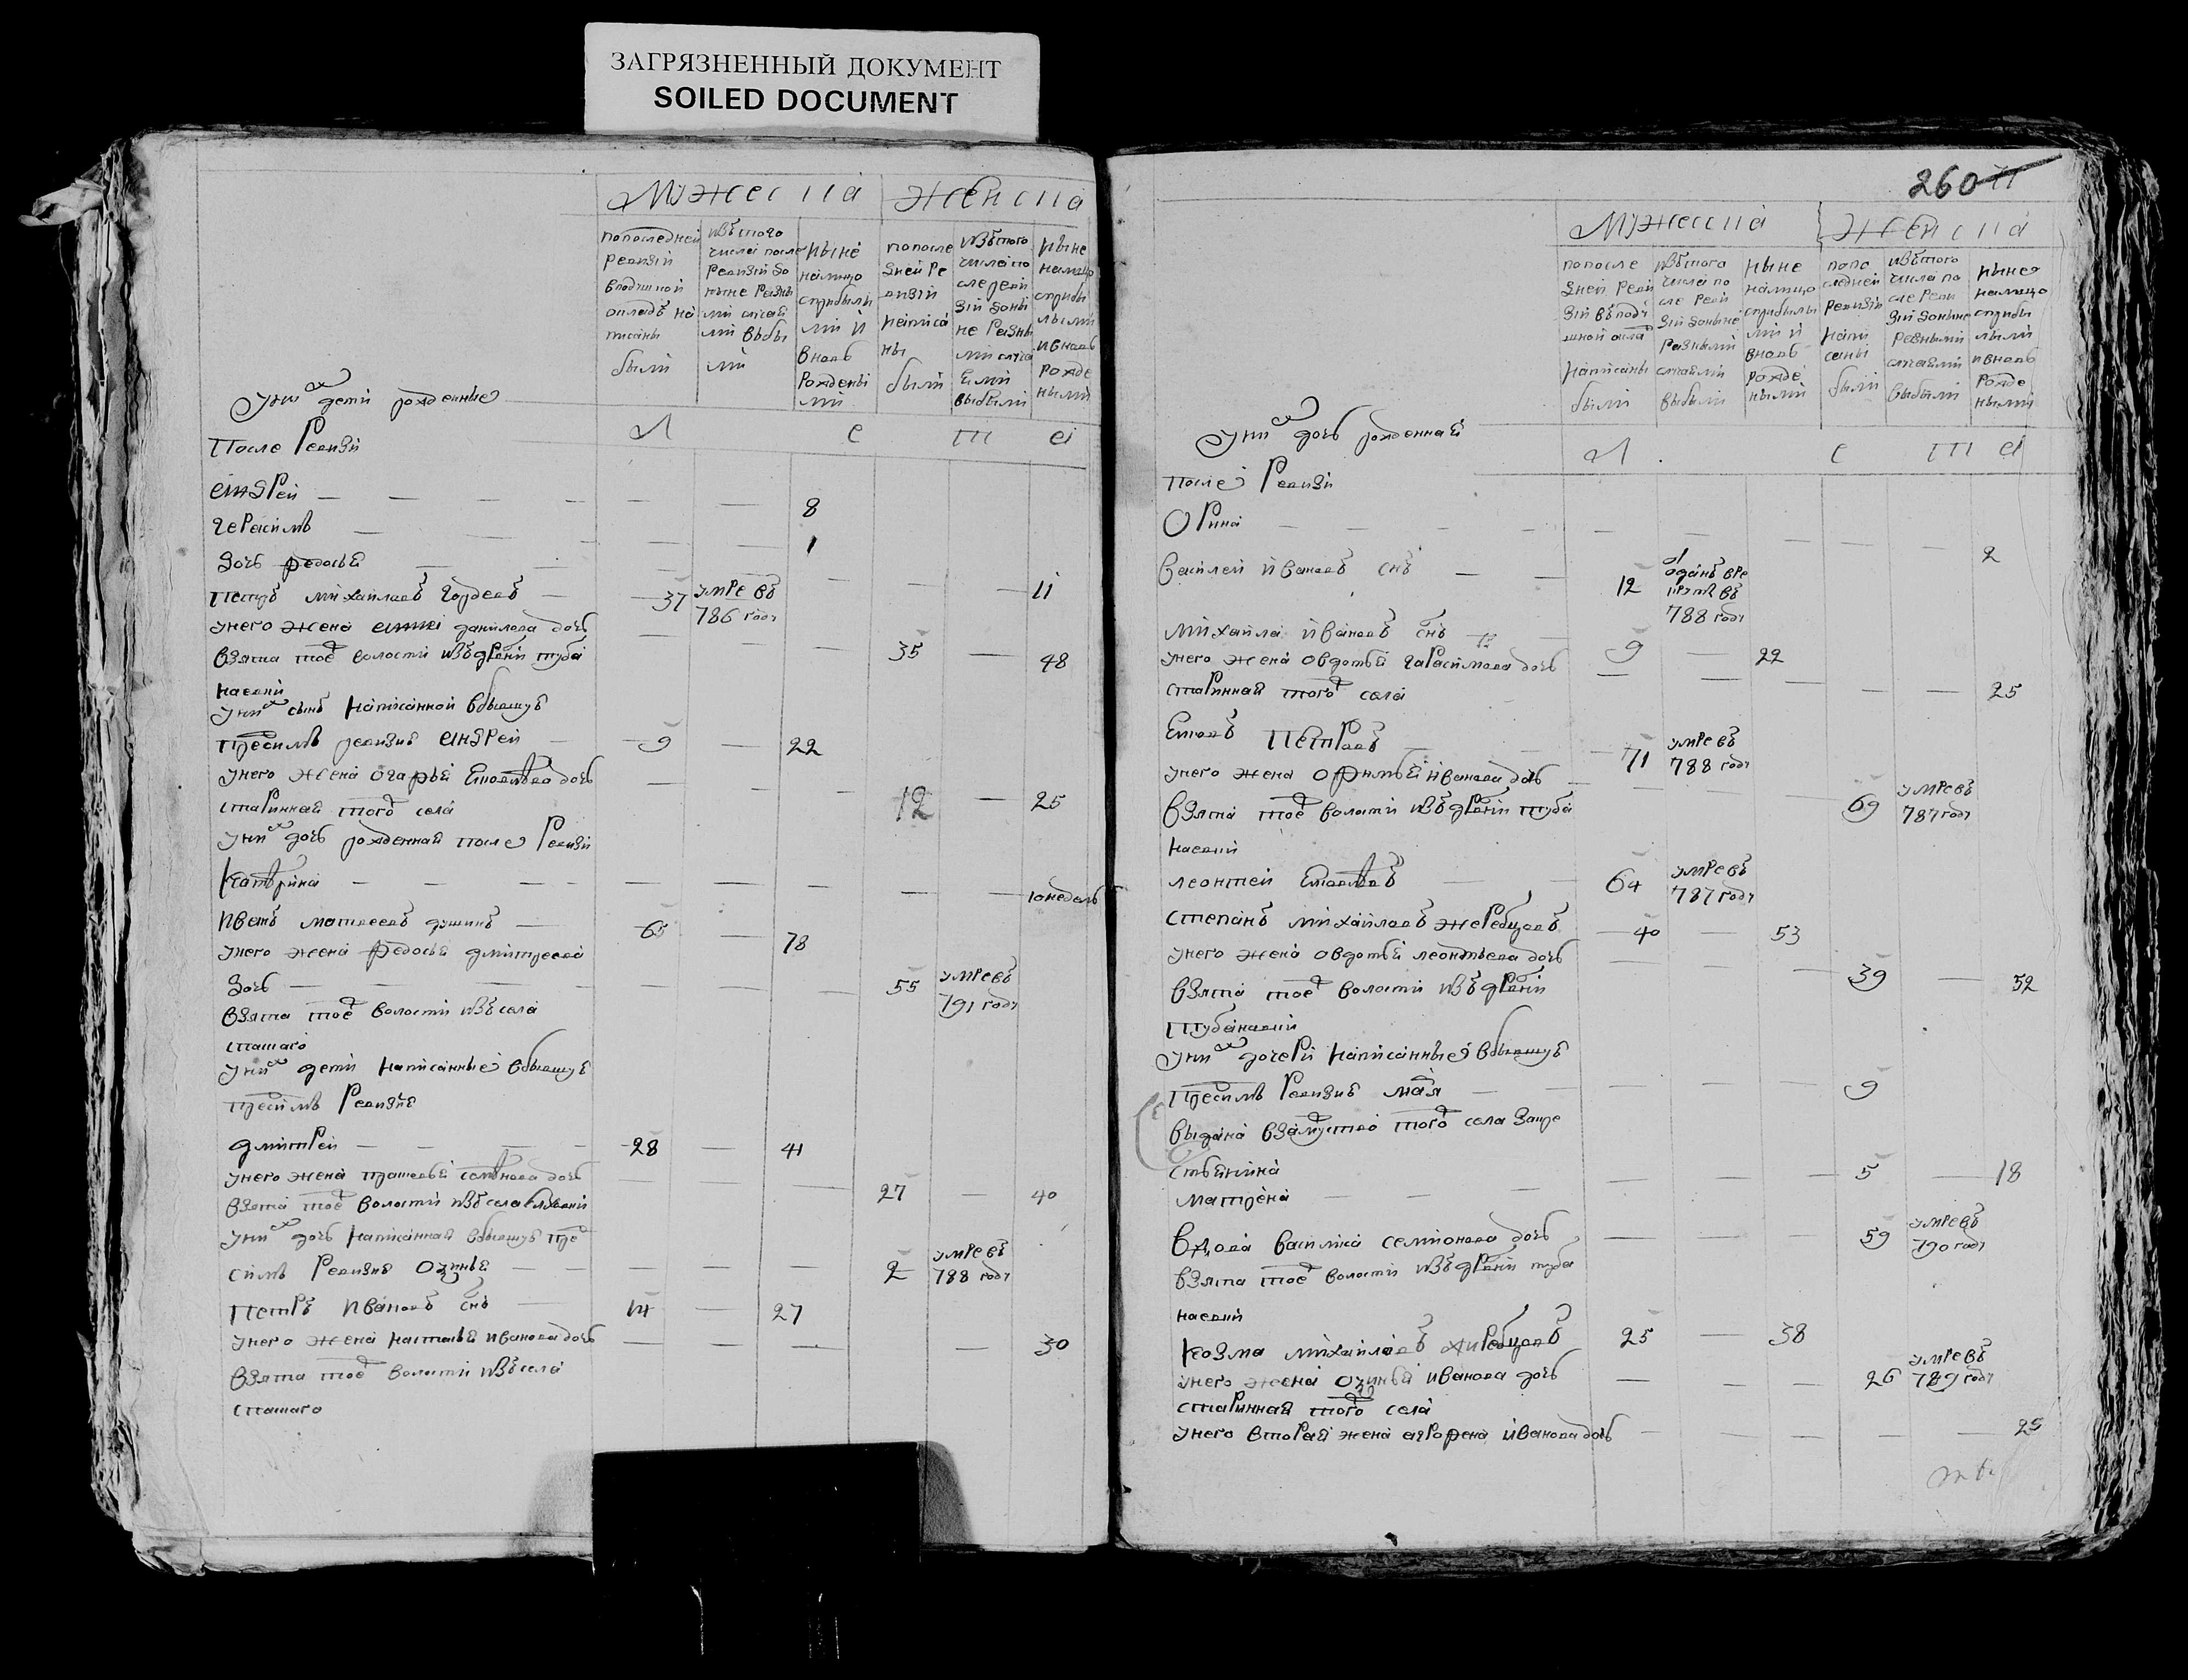 ЗАГРЯЗНЕННЫЙ ДОКУМЕНТ
SOILED DOCUMENT
Мужеска Женска
попоследней ревизи вподушной окладъ написаны были
изътого числа после ревизи до ныне разными случаями выбыли
ныне налицо сприбылыми и вновь рождеными
попоследней ревизи написаны были
изътого числа после ревизи доныне разными случаями выбыли
ныне налицо сприбылыми ивновь рождеными
Унихъ дети рожденные
После Ревизи
Л е т а
андрей — — 8
герасимъ — — 1
дочь федосья — — 11
Петръ михайловъ гордеевъ — 37 умре въ 786 году
унего жена анна данилова дочь
взята тоей волости изъ дрвни туба 35 — 48
наевки
Унихъ сынъ написанной вбывшую
пресимъ ревизию андрей — 9 — 22
унего жена огафья дочь
старинная тогож села 12 — 25
унихъ дочь рожденная после Ревизи
Катерина — — — 10недель
Иванъ матвеевъ — 65 — 78
унего жена федосья дмитреева
дочь — — 55 умре въ 791 году
взята тоей волости изъ села
спаского
Унихъ дети написанные вбывшую
пресимъ Ревизию
дмитрей — 28 — 41
унего жена прасковья семенова дочь
взята тоей волости изъ села 27 — 40
унихъ дочь написанная вбывшую пре
симъ Ревизию — 2 умре въ 788 году
Петръ Ивановъ снъ — 14 — 27
унего жена настасья иванова дочь — 30
взята тоей волости изъ села
спаского
260
Мужеска Женска
попоследней ревизи въ подушной оклад написаны были
изътого числа после ревизи доныне разными случаями выбыли
ныне налицо сприбылыми и вновь рождеными
попоследней ревизи написаны были
изътого числа после ревизи доныне разными случаями выбыли
ныне налицо сприбылыми ивновь рождеными
унихъ дочь рожденная
После Ревизи
Л е т а
Орина — — 2
василей Ивановъ снъ — 12 отданъ вре круты въ 788 году
михайла Ивановъ снъ — 9 — 22
унего жена овдотья гарасимова дочь
старинная тогож села — 25
Петровъ — 71 умре въ 788 году
унего жена офимья иванова дочь
взята тоей волости изъ дрвни туба 69 умре въ 787 году
наевки
леонтей — 64 умре въ 787 году
степанъ михайловъ жеребцовъ — 40 — 53
унего жена овдотья леонтьева дочь
взята тоей волости изъ дрвни 39 — 52
тубанаевки
Унихъ дочери написанные вбывшую
пресимъ Ревизию маря — 9
выдана взамуство тогож села закре
стьянина
матрена — 5 — 18
вдова василиса семионова дочь 59 умре въ 790 году
взята тоей волости изъ дрвни туба
наевки
Козма михайловъ жиребцовъ 25 — 38
унего жена иванова дочь — 26 умре въ 789 году
старинная тогож села
унего вторая жена аграфена иванова дочь — 25